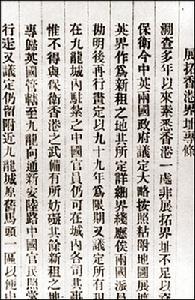 展拓香港界址專條
溯查多年以來素悉香港一處非展拓界址不足以
保衛今中英兩國政府議定大略按照粘附地圖展
英界作為新租之地其所定詳細界綫應俟兩國派
勘明後再行畫定以九十九年為限期又議定所有現
在九龍城內駐紮之中國官員仍可在城內各司其事
惟不得與保衛香港之武備有所妨礙其餘新租之
專歸英國管轄至九龍向通新安陸路中國官民照常
行走又議定仍留附近九龍城原舊馬頭一區以便中